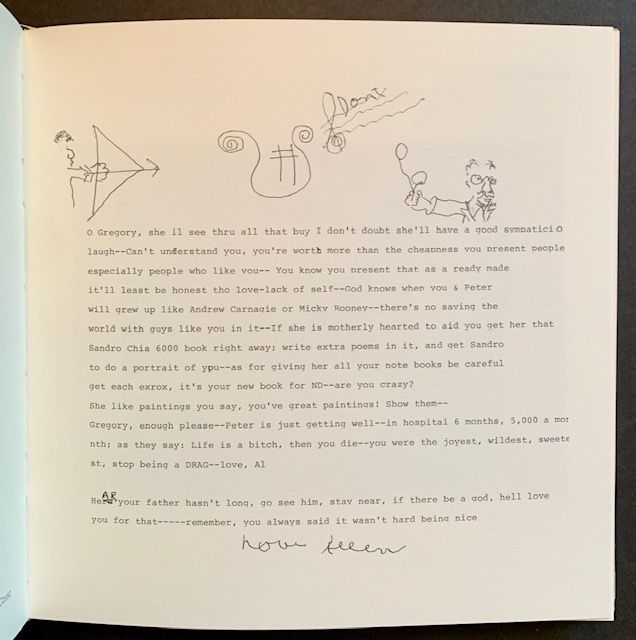 Dont
O Gregory, she ll see thru all that buy I don't doubt she'll have a good sympaticiO
laugh--Can't understand you, you're worth more than the cheapness you present people
especially people who like you-- You know you present that as a ready made
it'll least be honest tho love-lack of self--God knows when you & Peter
will grew up like Andrew Carnagie or Micky Rooney--there's no saving the
world with guys like you in it--If she is motherly hearted to aid you get her that
Sandro Chia 6000 book right away; write extra poems in it, and get Sandro
to do a portrait of ypu--as for giving her all your note books be careful
get each exrox, it's your new book for ND--are you crazy?
She like paintings you say, you've great paintings! Show them--
Gregory, enough please--Peter is just getting well--in hospital 6 months, 5,000 a mor
nth; as they say: Life is a bitch, then you die--you were the joyest, wildest, sweete
st, stop being a DRAG--love, Al
HeAR your father hasn't long, go see him, stay near, if there be a god, hell love
you for that-----remember, you always said it wasn't hard being nice